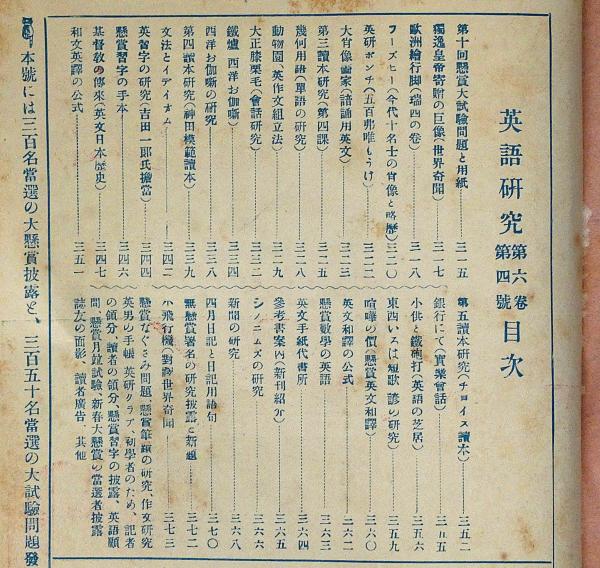 英語研究 第六卷 第四號 目次
第十回懸賞大試驗問題と用紙……三一五
獨逸皇帝寄贈の巨像(世界奇聞)……三一七
歐洲繪行脚(瑞西の卷)……三一八
フーズヒー(今代十名士の肖像と略歷)……三二〇
英研ポンチ(五百弗唯もうけ)……三二二
大肖像畫家(諳誦用英文)……三二三
第三讀本研究(第四課)……三二五
幾何用語(單語の研究)……三二八
動物園、英作文組立法……三二九
大正膝栗毛(會話研究)……三三二
鐵爐 西洋お伽噺……三三四
西洋お伽噺の研究……三三八
第四讀本研究(神田模範讀本)……三三九
文法とイディオム……三四二
英習字の研究(吉田一郎氏擔當)……三四四
懸賞習字の手本……三四六
基督敎の傳來(英文日本歷史)……三四七
和文英譯の公式……三五一
第五讀本研究(チョイス讀本)……三五二
銀行にて(實業會話)……三五五
小供と鐵砲打(英語の芝居)……三五六
東西いろは短歌 諺の研究……三五九
喧嘩の價(懸賞英文和譯)……三六〇
英文和譯の公式……三六二
懸賞數學の英語……三六三
英文手紙代書所……三六四
參考書案內(新刊紹介)……三六五
シノニムズの研究……三六六
新聞の研究……三六八
四月日記と日記用語句……三七〇
無懸賞署名の研究披露と新題……三七二
小飛行機(對譯世界奇聞)……三七三
懸賞なぐさみ問題、懸賞筆蹟の研究、作文研究
英男の手帳 英研クラブ、初學者のため、記者
の領分、讀者の領分、懸賞習字の披露、英語顧
問、懸賞月竝試驗、新春大懸賞の當選者披露
誌友の面影、讀者廣告、其他
本號には三百名當選の大懸賞披露と、三百五十名當選の大試驗問題發